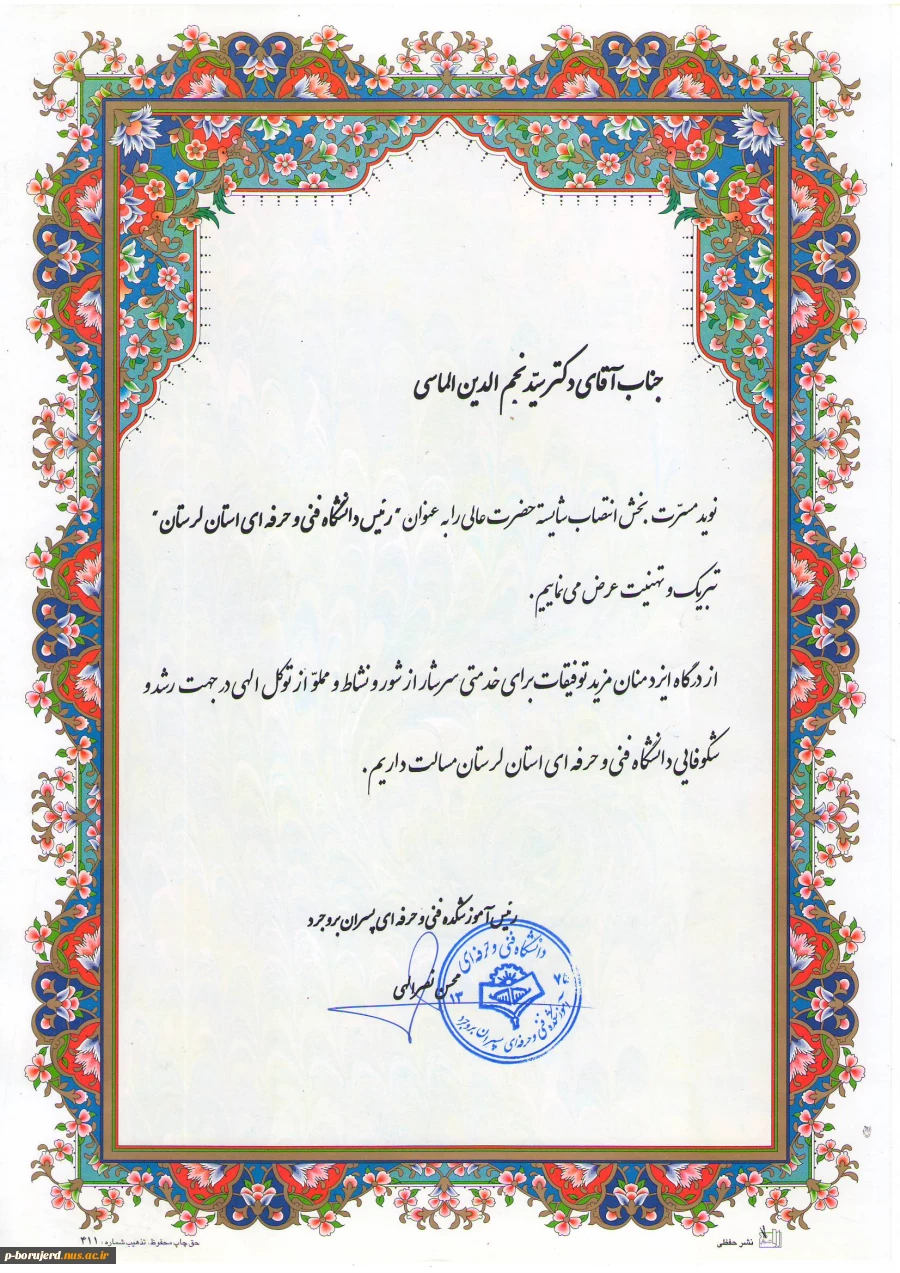 جناب آقای دکتر سیّد نجم الدین الماسی
نوید مسرّت بخش انتصاب شایسته حضرت عالی را به عنوان "رئیس دانشگاه فنی و حرفه ای استان لرستان"
تبریک و تهنیت عرض می نماییم.
از درگاه ایزد منان مزید توفیقات برای خدمتی سرشار از شور و نشاط و مملوّ از توکل الهی در جهت رشد و
شکوفایی دانشگاه فنی و حرفه ای استان لرستان مسالت داریم.
رئیس آموزشکده فنی و حرفه ای پسران بروجرد
محسن نصرالهی
دانشگاه فنی و حرفه ای
۱۳ ۷۸
آموزشکده فنی و حرفه ای پسران بروجرد
نشر حفظی
حق چاپ محفوظ، تذهیب شماره: ۴۱۱
p-borujerd.nus.ac.ir